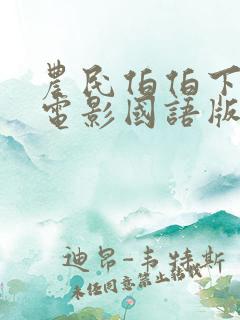 農民伯伯下
電影國語版
迪昂-韋特斯
未經同意禁止轉載